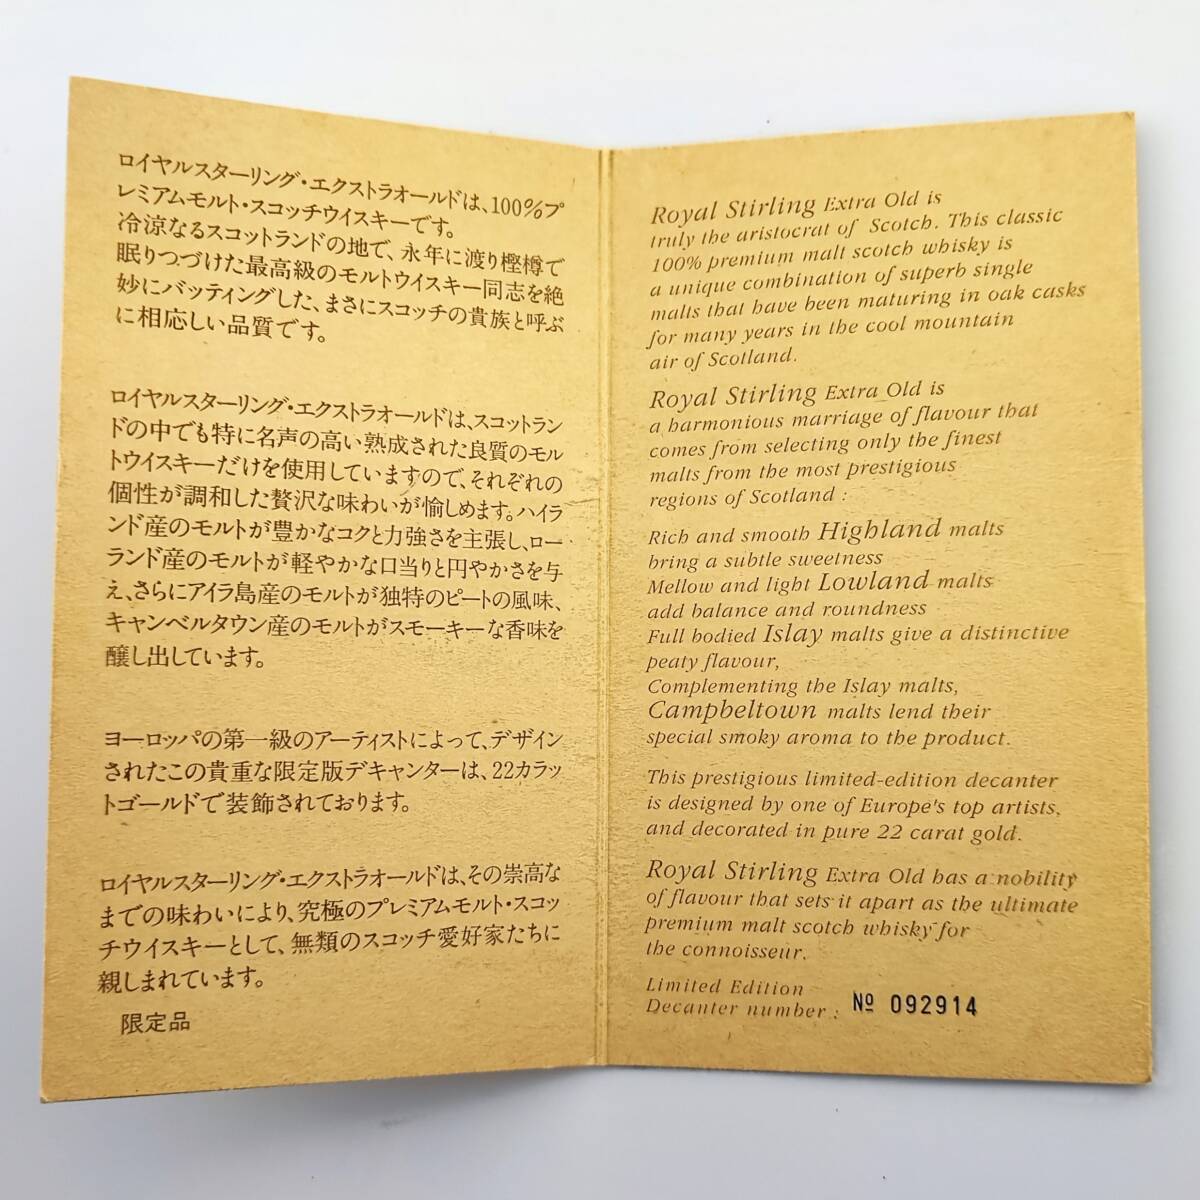 ロイヤルスターリング・エクストラオールドは、100%プ
レミアムモルト・スコッチウイスキーです。
冷涼なるスコットランドの地で、永年に渡り樫樽で
眠りつづけた最高級のモルトウイスキー同志を絶
妙にバッティングした、まさにスコッチの貴族と呼ぶ
に相応しい品質です。
ロイヤルスターリング・エクストラオールドは、スコットラン
ドの中でも特に名声の高い熟成された良質のモル
トウイスキーだけを使用していますので、それぞれの
個性が調和した贅沢な味わいが愉しめます。ハイラ
ンド産のモルトが豊かなコクと力強さを主張し、ロー
ランド産のモルトが軽やかな口当りと円やかさを与
え、さらにアイラ島産のモルトが独特のピートの風味、
キャンベルタウン産のモルトがスモーキーな香味を
醸し出しています。
ヨーロッパの第一級のアーティストによって、デザイン
されたこの貴重な限定版デキャンターは、22カラッ
トゴールドで装飾されております。
ロイヤルスターリング・エクストラオールドは、その崇高な
までの味わいにより、究極のプレミアムモルト・スコッ
チウイスキーとして、無類のスコッチ愛好家たちに
親しまれています。
限定品
Royal Stirling Extra Old is
truly the aristocrat of Scotch. This classic
100% premium malt scotch whisky is
a unique combination of superb single
malts that have been maturing in oak casks
for many years in the cool mountain
air of Scotland.
Royal Stirling Extra Old is
a harmonious marriage of flavour that
comes from selecting only the finest
malts from the most prestigious
regions of Scotland :
Rich and smooth Highland malts
bring a subtle sweetness
Mellow and light Lowland malts
add balance and roundness
Full bodied Islay malts give a distinctive
peaty flavour,
Complementing the Islay malts,
Campbeltown malts lend their
special smoky aroma to the product.
This prestigious limited-edition decanter
is designed by one of Europe's top artists,
and decorated in pure 22 carat gold.
Royal Stirling Extra Old has a nobility
of flavour that sets it apart as the ultimate
premium malt scotch whisky for
the connoisseur.
Limited Edition
Decanter number : № 092914